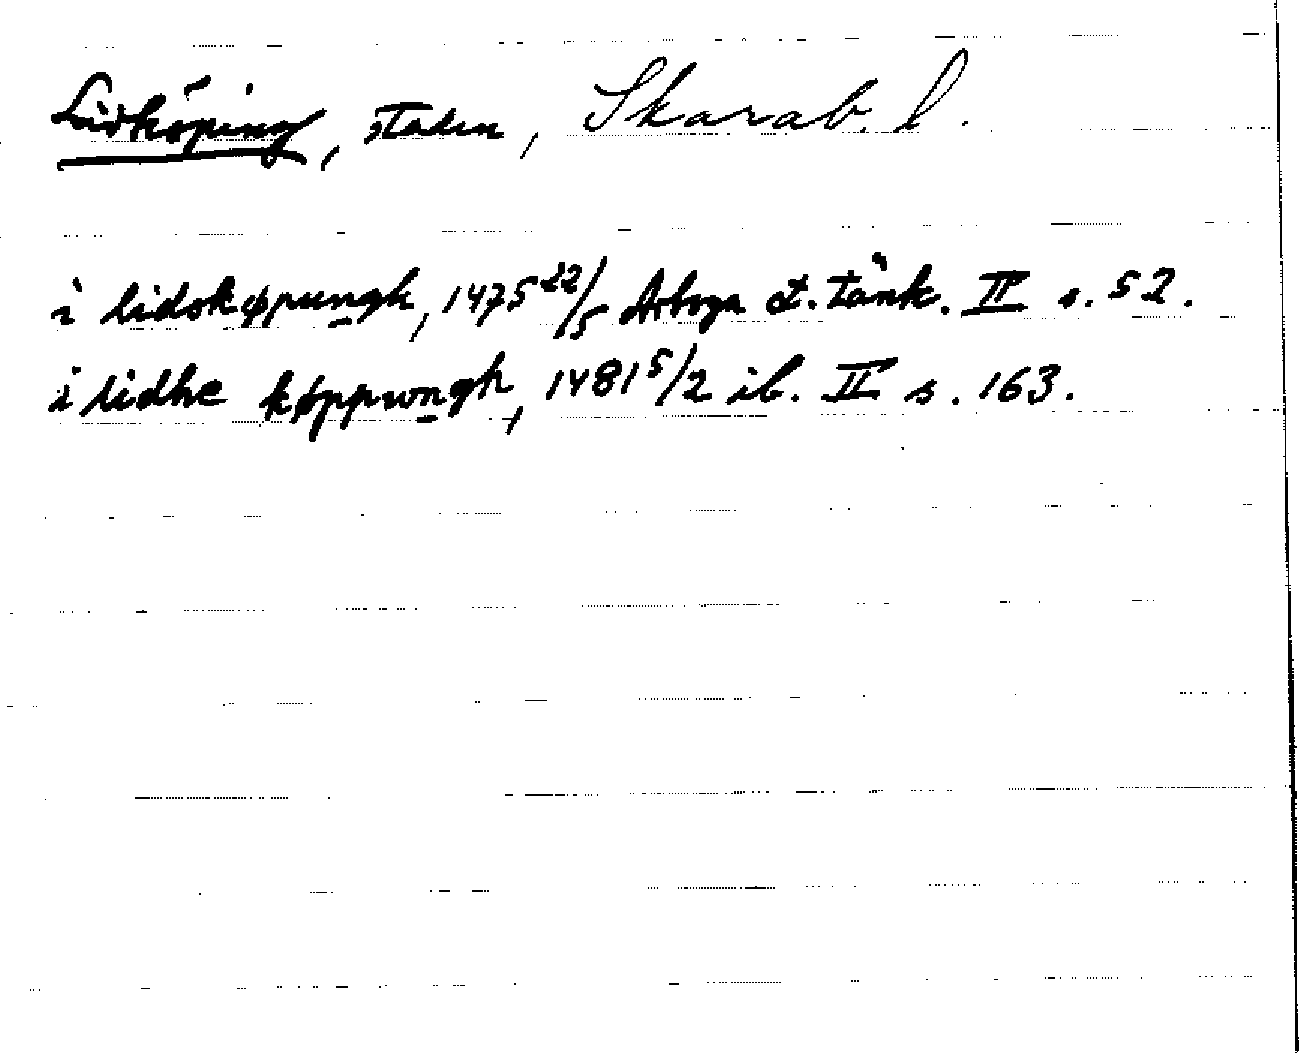 Lidköping, staden, Skarab. l.
i lidskøpungh, 1475 22/5 Arboga st. tänk. II s. 52.
i lidhe køppwngh, 1481 5/2 ib. II s. 163.